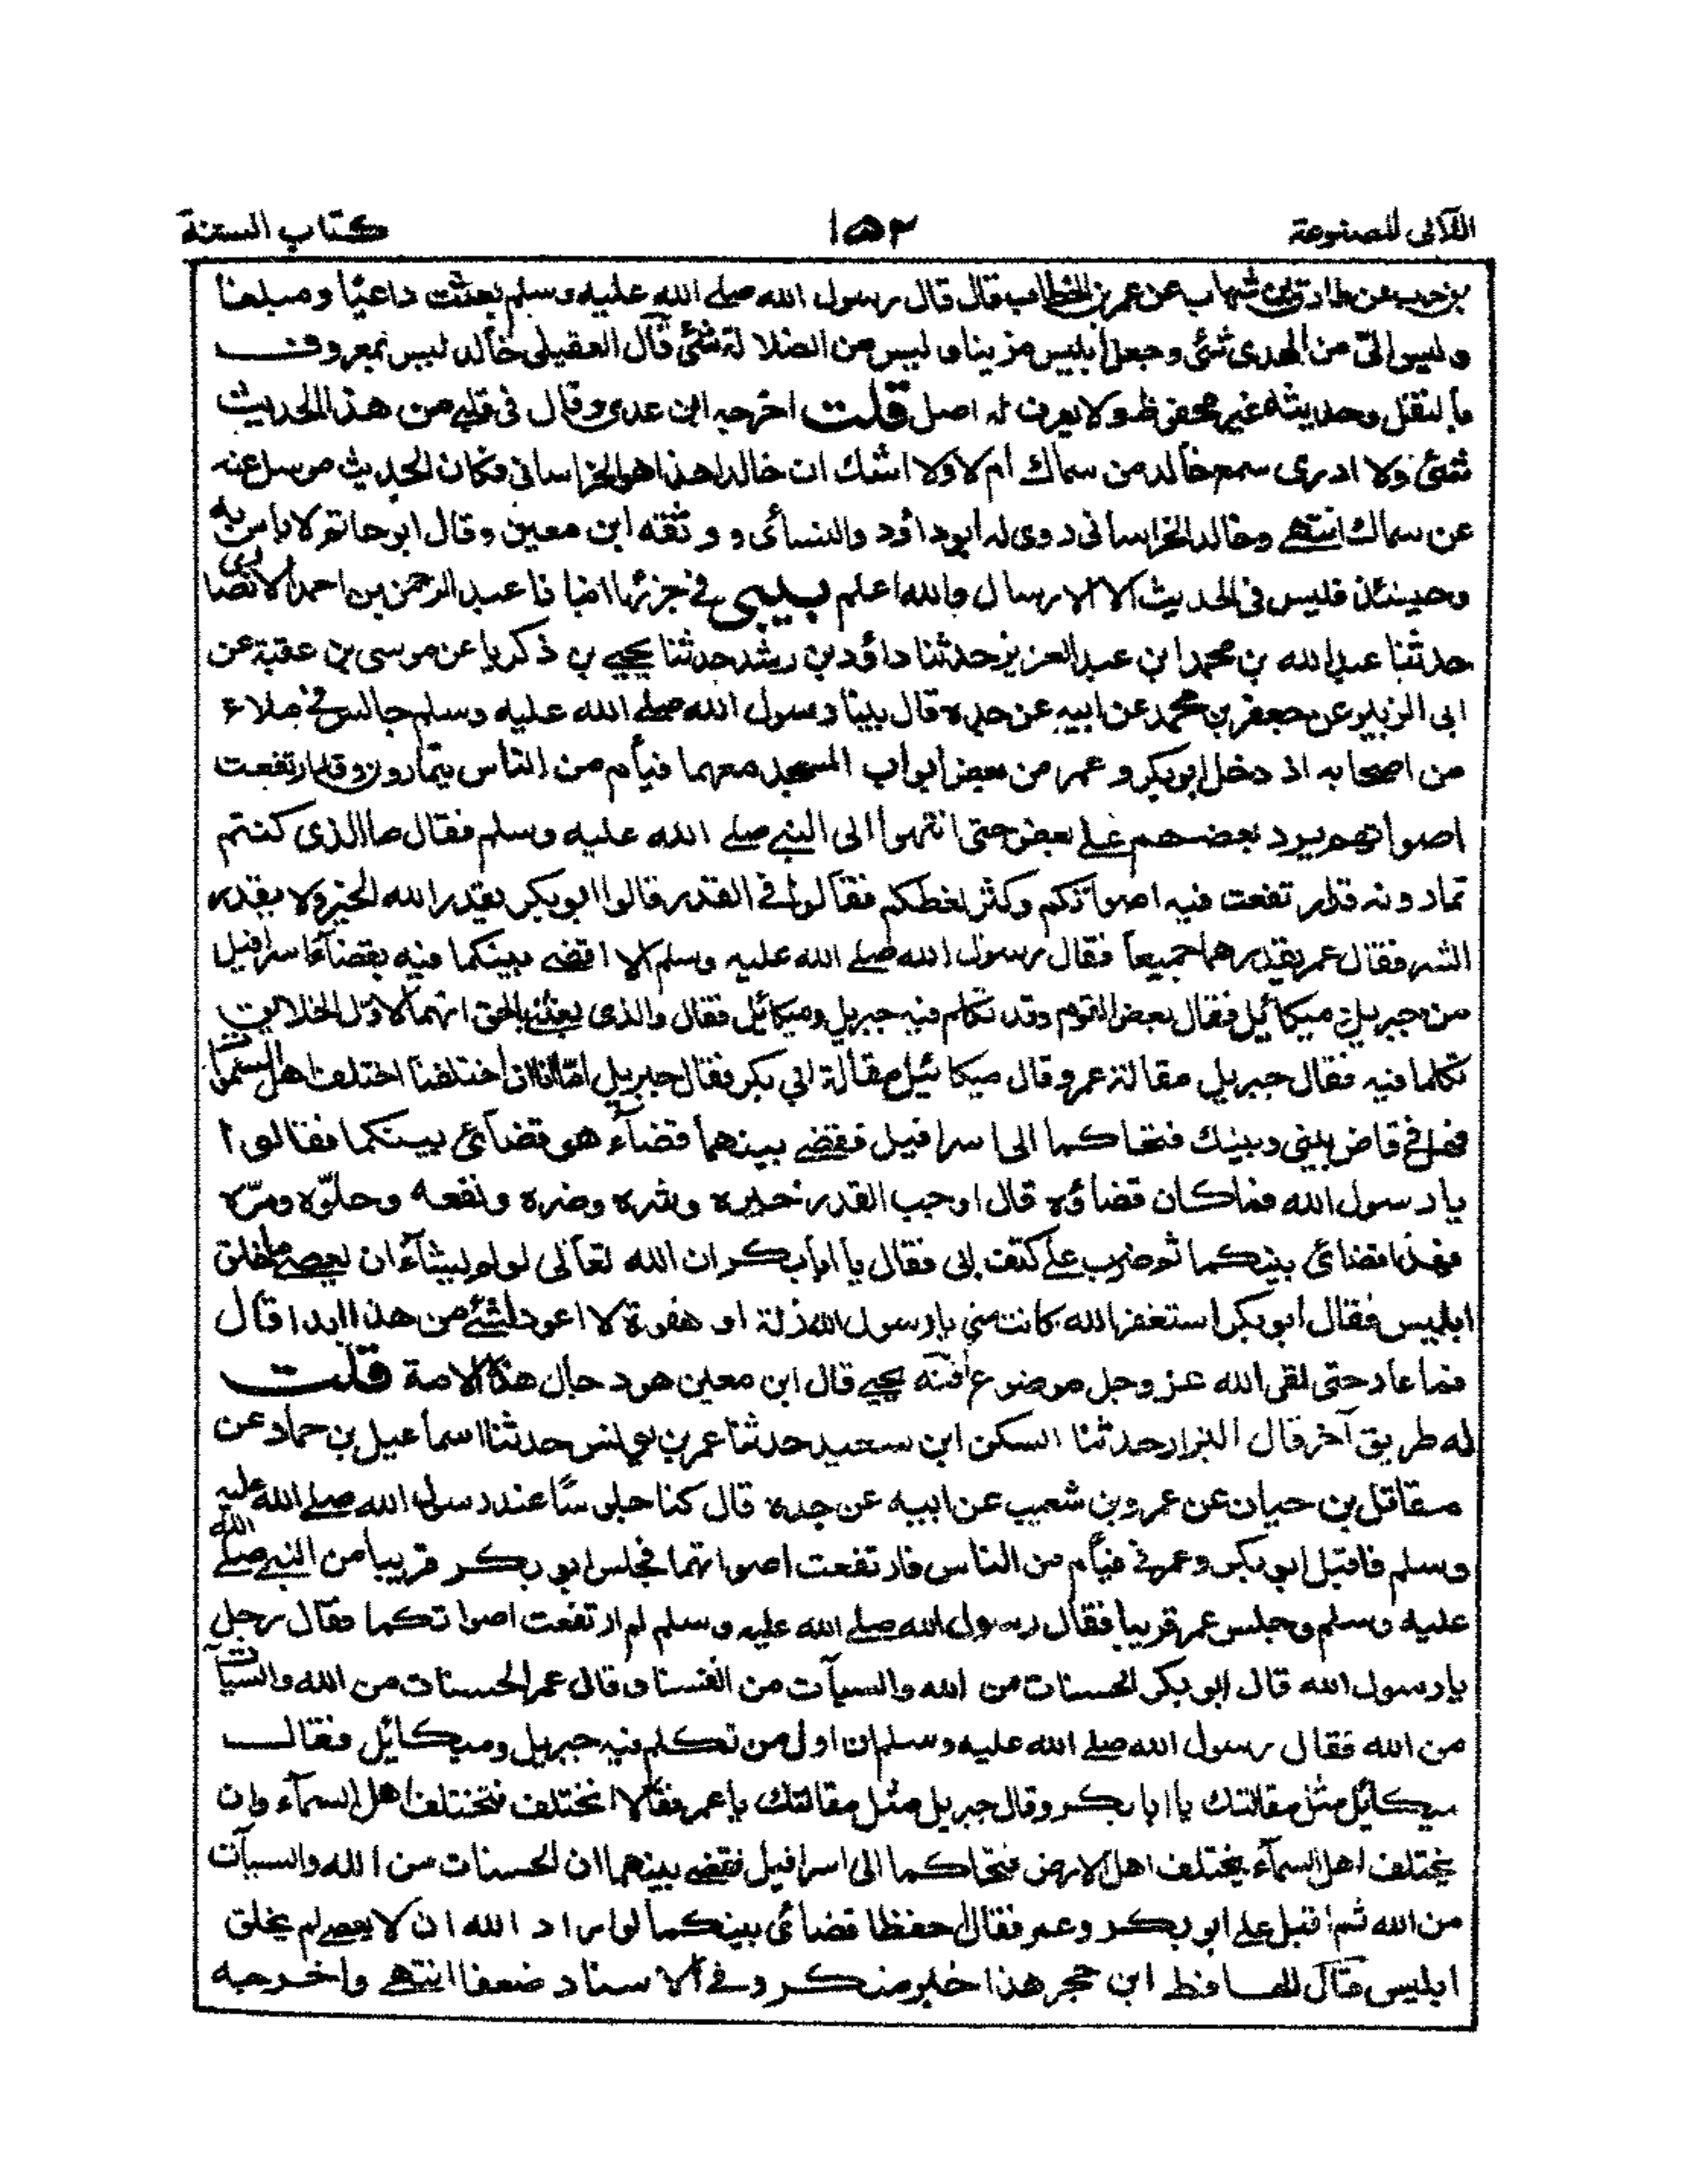 اللآلى المصنوعة ١٥٣ كتاب السنة
بن حرب عن طارق بن شهاب عن عمر بن الخطاب قال قال رسول الله صلى الله عليه وسلم بعثت داعيا ومبلغا
وليس الىّ من الهدى شئ وجعل ابليس مزينا وليس من الضلالة شئ قال العقيلى خالد ليس بمعروف
بالنقل وحديثه غير محفوظ ولا يعرف له اصل قلت اخرجه ابن عدى وقال فى قلبى من هذا الحديث
شئ ولا ادرى سمع خالد من سماك ام لا ولا اشك ان خالدا هذا هو الخراسانى فكان الحديث مرسل عنه
عن سماك انتهى وخالد الخراسانى روى له ابو داؤد والنسائى ووثقه ابن معين وقال ابو حاتم لا باس به
وحينئذ فليس فى الحديث الا الارسال والله اعلم بيبى فى جزئها انبانا عبد الرحمن بن احمد الانصارى
حدثنا عبد الله بن محمد ابن عبد العزيز حدثنا داؤد بن رشد حدثنا يحيى بن زكريا عن موسى بن عقبة عن
ابى الزبير وعن جعفر بن محمد عن ابيه عن جده قال بينا رسول الله صلى الله عليه وسلم جالس فى ملاء
من اصحابه اذ دخل ابوبكر وعمر من بعض ابواب المسجد معهما فيأم من الناس يتمارون وقد ارتفعت
اصواتهم يرد بعضهم على بعض حتى انتهوا الى النبى صلى الله عليه وسلم فقال ما الذى كنتم
تمارونه قد ارتفعت فيه اصواتكم وكثر لغطكم فقالوا فى القدر قالوا ابوبكر يقدر الله الخير ولا يقدر
الشر فقال عمر يقدرهما جميعاً فقال رسول الله صلى الله عليه وسلم الا اقضى بينكما فيه بقضآء اسرافيل
بين جبريل وميكائيل فقال بعض القوم وقد تكلم فيه جبريل وميكائيل فقال والذى بعثنى بالحق انهما لاول الخلايق
تكلما فيه فقال جبريل مقالة عمر وقال ميكائيل مقالة ابى بكر فقال جبريل امّا انا ان اختلفنا اختلف اهل السموات
فهل فى قاض بينى وبينك فتحاكما الى اسرافيل فقضى بينهما قضاء هو قضائى بينكما فقالوا
يا رسول الله فما كان قضاؤه قال اوجب القدر خيره وشره وضره ونفعه وحلوّه ومرّه
فهذا قضائى بينكما ثم ضرب على كتف ابى فقال يا ابابكر ان الله تعالى لو لم يشآء ان يعصى ما خلق
ابليس فقال ابوبكر استغفر الله كانت منى يا رسول الله زلة او هفوة لا اعود لشئ من هذا ابدا قال
فما عاد حتى لقى الله عز وجل موضوع آفته يحيى قال ابن معين هو دجال هذه الامة قلت
له طريق آخر قال البزار حدثنا السكن ابن سعيد حدثنا عمر بن يونس حدثنا اسماعيل بن حماد عن
مقاتل بن حيان عن عمرو بن شعيب عن ابيه عن جده قال كنا جلوسًا عند رسول الله صلى الله عليه
وسلم فاقبل ابوبكر وعمر فى فيأم من الناس فارتفعت اصواتهما فجلس ابو بكر قريبا من النبى صلى الله
عليه وسلم وجلس عمر قريبا فقال رسول الله صلى الله عليه وسلم لم ارتفعت اصواتكما فقال رجل
يا رسول الله قال ابو بكر الحسنات من الله والسيآت من انفسنا وقال عمر الحسنات من الله والسيآت
من الله فقال رسول الله صلى الله عليه وسلم ان اول من تكلم فيه جبريل وميكائل فقال
ميكائل مثل مقالتك يا ابا بكر وقال جبريل مثل مقالتك يا عمر فقالا انختلف فتختلف اهل السمآء وان
يختلف اهل السمآء يختلف اهل الارض فتحاكما الى اسرافيل فقضى بينهما ان الحسنات من الله والسيآت
من الله ثم اقبل على ابو بكر وعمر فقال احفظا قضائى بينكما لو اراد الله ان لا يعصى لم يخلق
ابليس قال الحافظ ابن حجر هذا خبر منكر وفى الاسناد ضعفا انتهى واخرجه